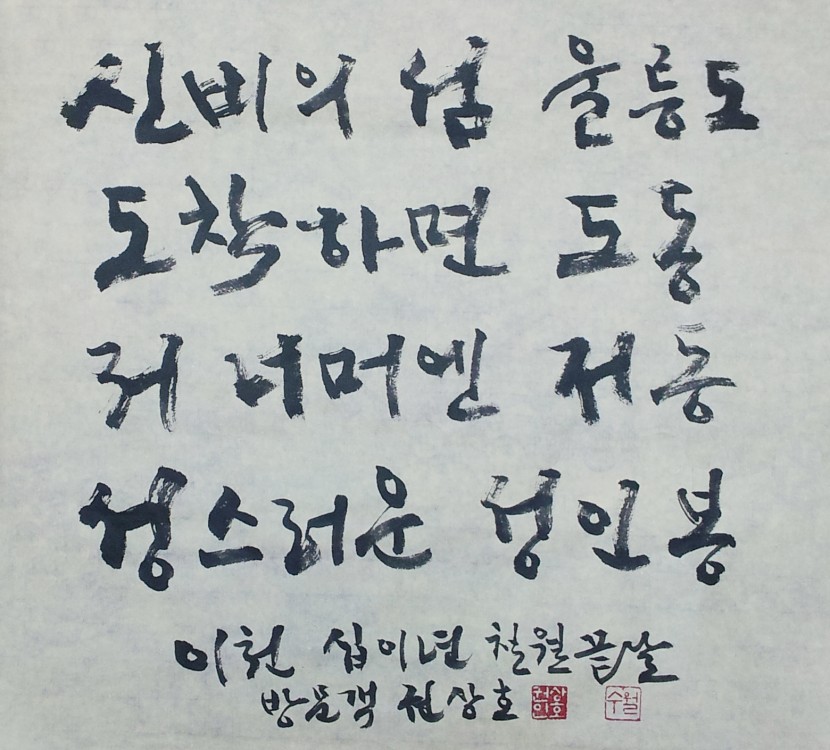 신비의 섬 울릉도
도착하면 도동
저 너머엔 저동
성스러운 성인봉
이천 십이년 칠월 끝날
방문객 권상호
수월